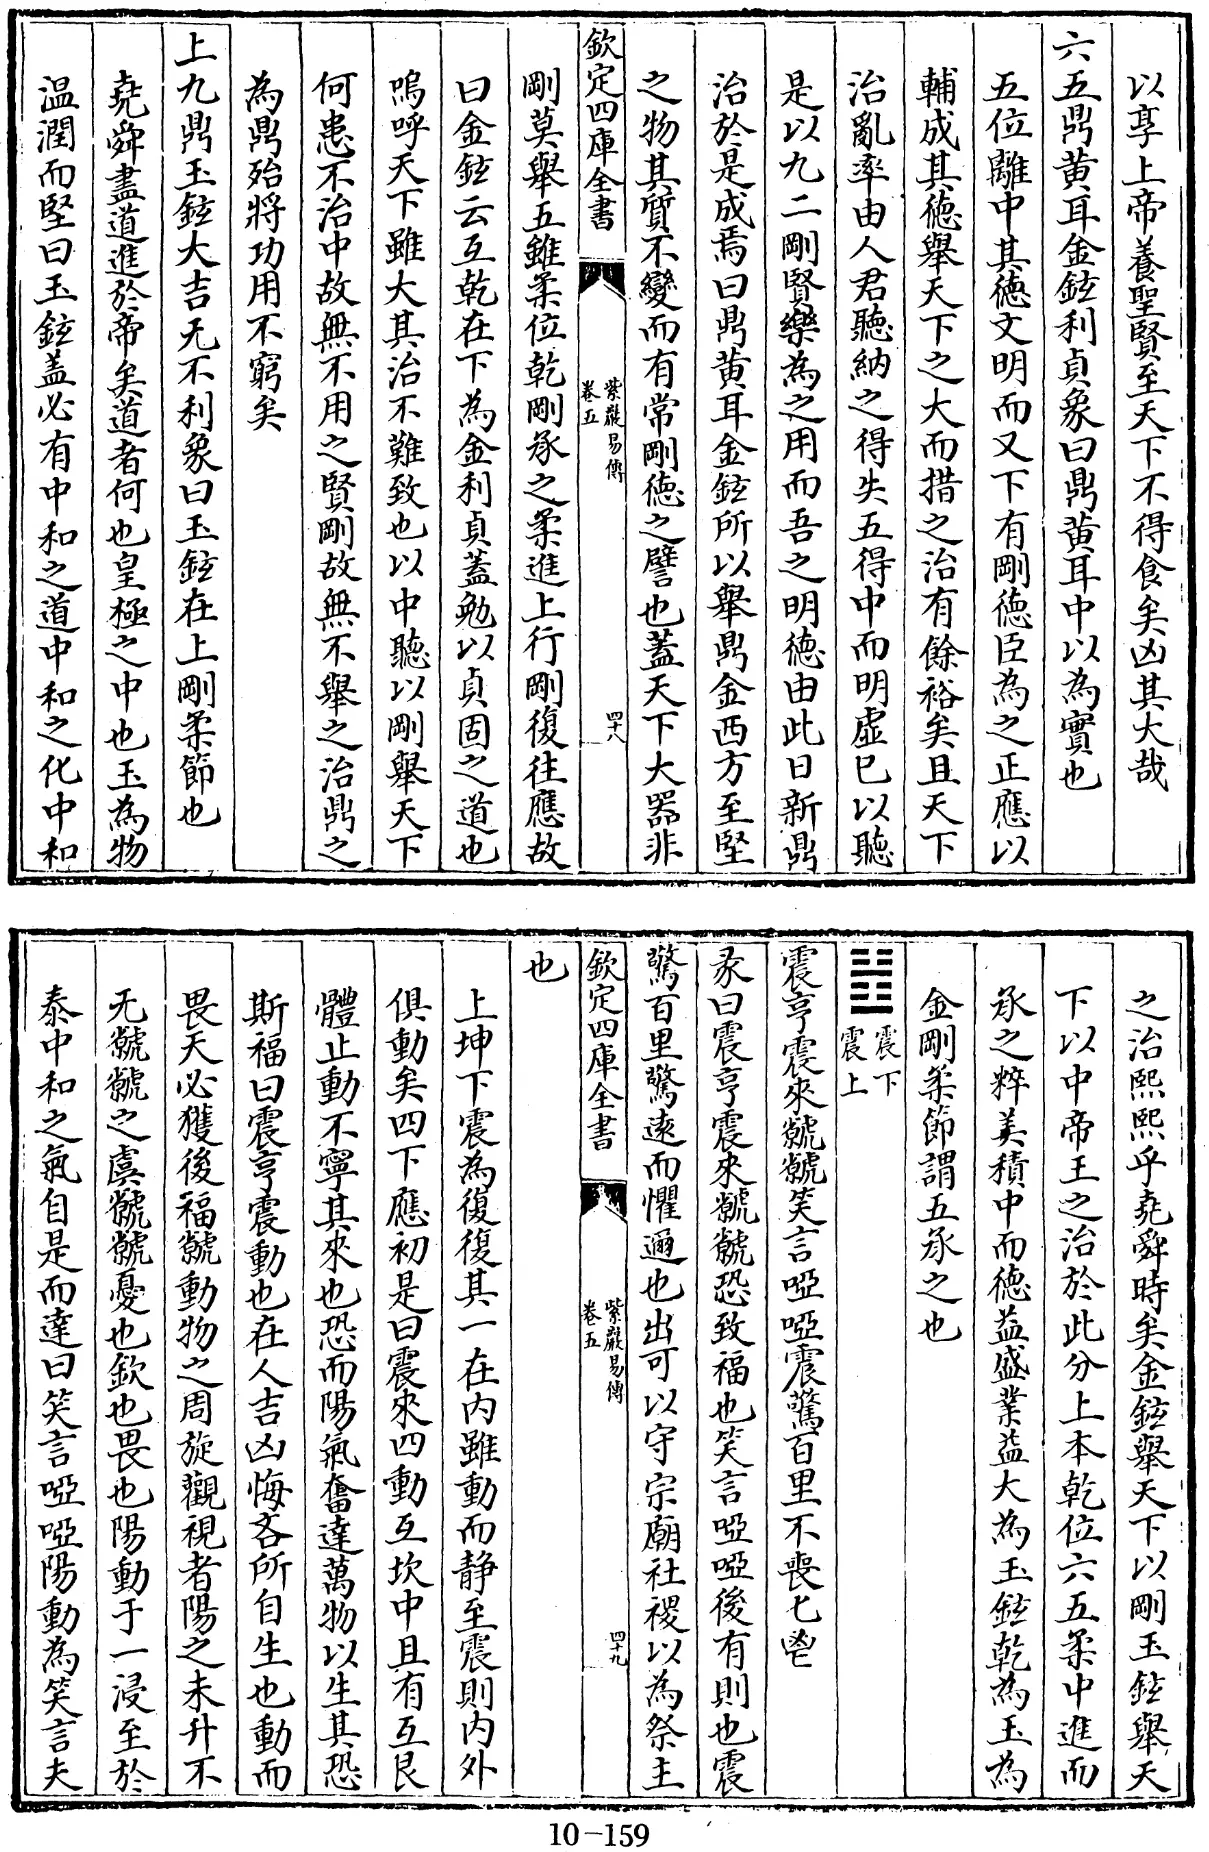 以享上帝養聖賢至天下不得食矣凶其大哉
六五鼎黄耳金鉉利貞象曰鼎黄耳中以為實也
五位離中其徳文明而又下有剛徳臣為之正應以
輔成其徳舉天下之大而措之治有餘裕矣且天下
治亂率由人君聽納之得失五得中而明虚已以聽
是以九二剛賢樂為之用而吾之明徳由此日新鼎
治於是成焉曰鼎黄耳金鉉所以舉鼎金西方至堅
之物其質不變而有常剛徳之譬也蓋天下大器非
欽定四庫全書
紫巖易傳
卷五
四十八
剛莫舉五雖柔位乾剛承之柔進上行剛復往應故
曰金鉉云互乾在下為金利貞蓋勉以貞固之道也
嗚呼天下雖大其治不難致也以中聽以剛舉天下
何患不治中故無不用之賢剛故無不舉之治鼎之
為鼎殆將功用不窮矣
上九鼎玉鉉大吉无不利象曰玉鉉在上剛柔節也
堯舜盡道進於帝矣道者何也皇極之中也玉為物
温潤而堅曰玉鉉盖必有中和之道中和之化中和
之治熙熙乎堯舜時矣金鉉舉天下以剛玉鉉舉天
下以中帝王之治於此分上本乾位六五柔中進而
承之粹美積中而徳益盛業益大為玉鉉乾為玉為
金剛柔節謂五承之也
震下
震上
震亨震來虩虩笑言啞啞震驚百里不喪匕鬯
彖曰震亨震來虩虩恐致福也笑言啞啞後有則也震
驚百里驚逺而懼邇也出可以守宗廟社稷以為祭主
欽定四庫全書
紫巖易傳
卷五
四十九
也
上坤下震為復復其一在内雖動而静至震則内外
俱動矣四下應初是曰震來四動互坎中且有互艮
體止動不寧其來也恐而陽氣奮達萬物以生其恐
斯福曰震亨震動也在人吉凶悔吝所自生也動而
畏天必獲後福虩動物之周旋觀視者陽之未升不
无虩虩之虞虩虩憂也欽也畏也陽動于一浸至於
泰中和之氣自是而達曰笑言啞啞陽動為笑言夫
10-159